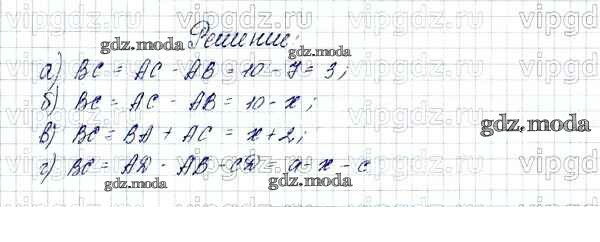 Решение:
а) BC = AC - AB = 10 - 7 = 3;
б) BC = AC - AB = 10 - x;
в) BC = BA + AC = x + 2;
г) BC = AD - AB - CD = a - x - c
gdz.moda
gdz.moda
gdz.moda
gdz.moda
gdz.moda
vipgdz.ru
vipgdz.ru
vipgdz.ru